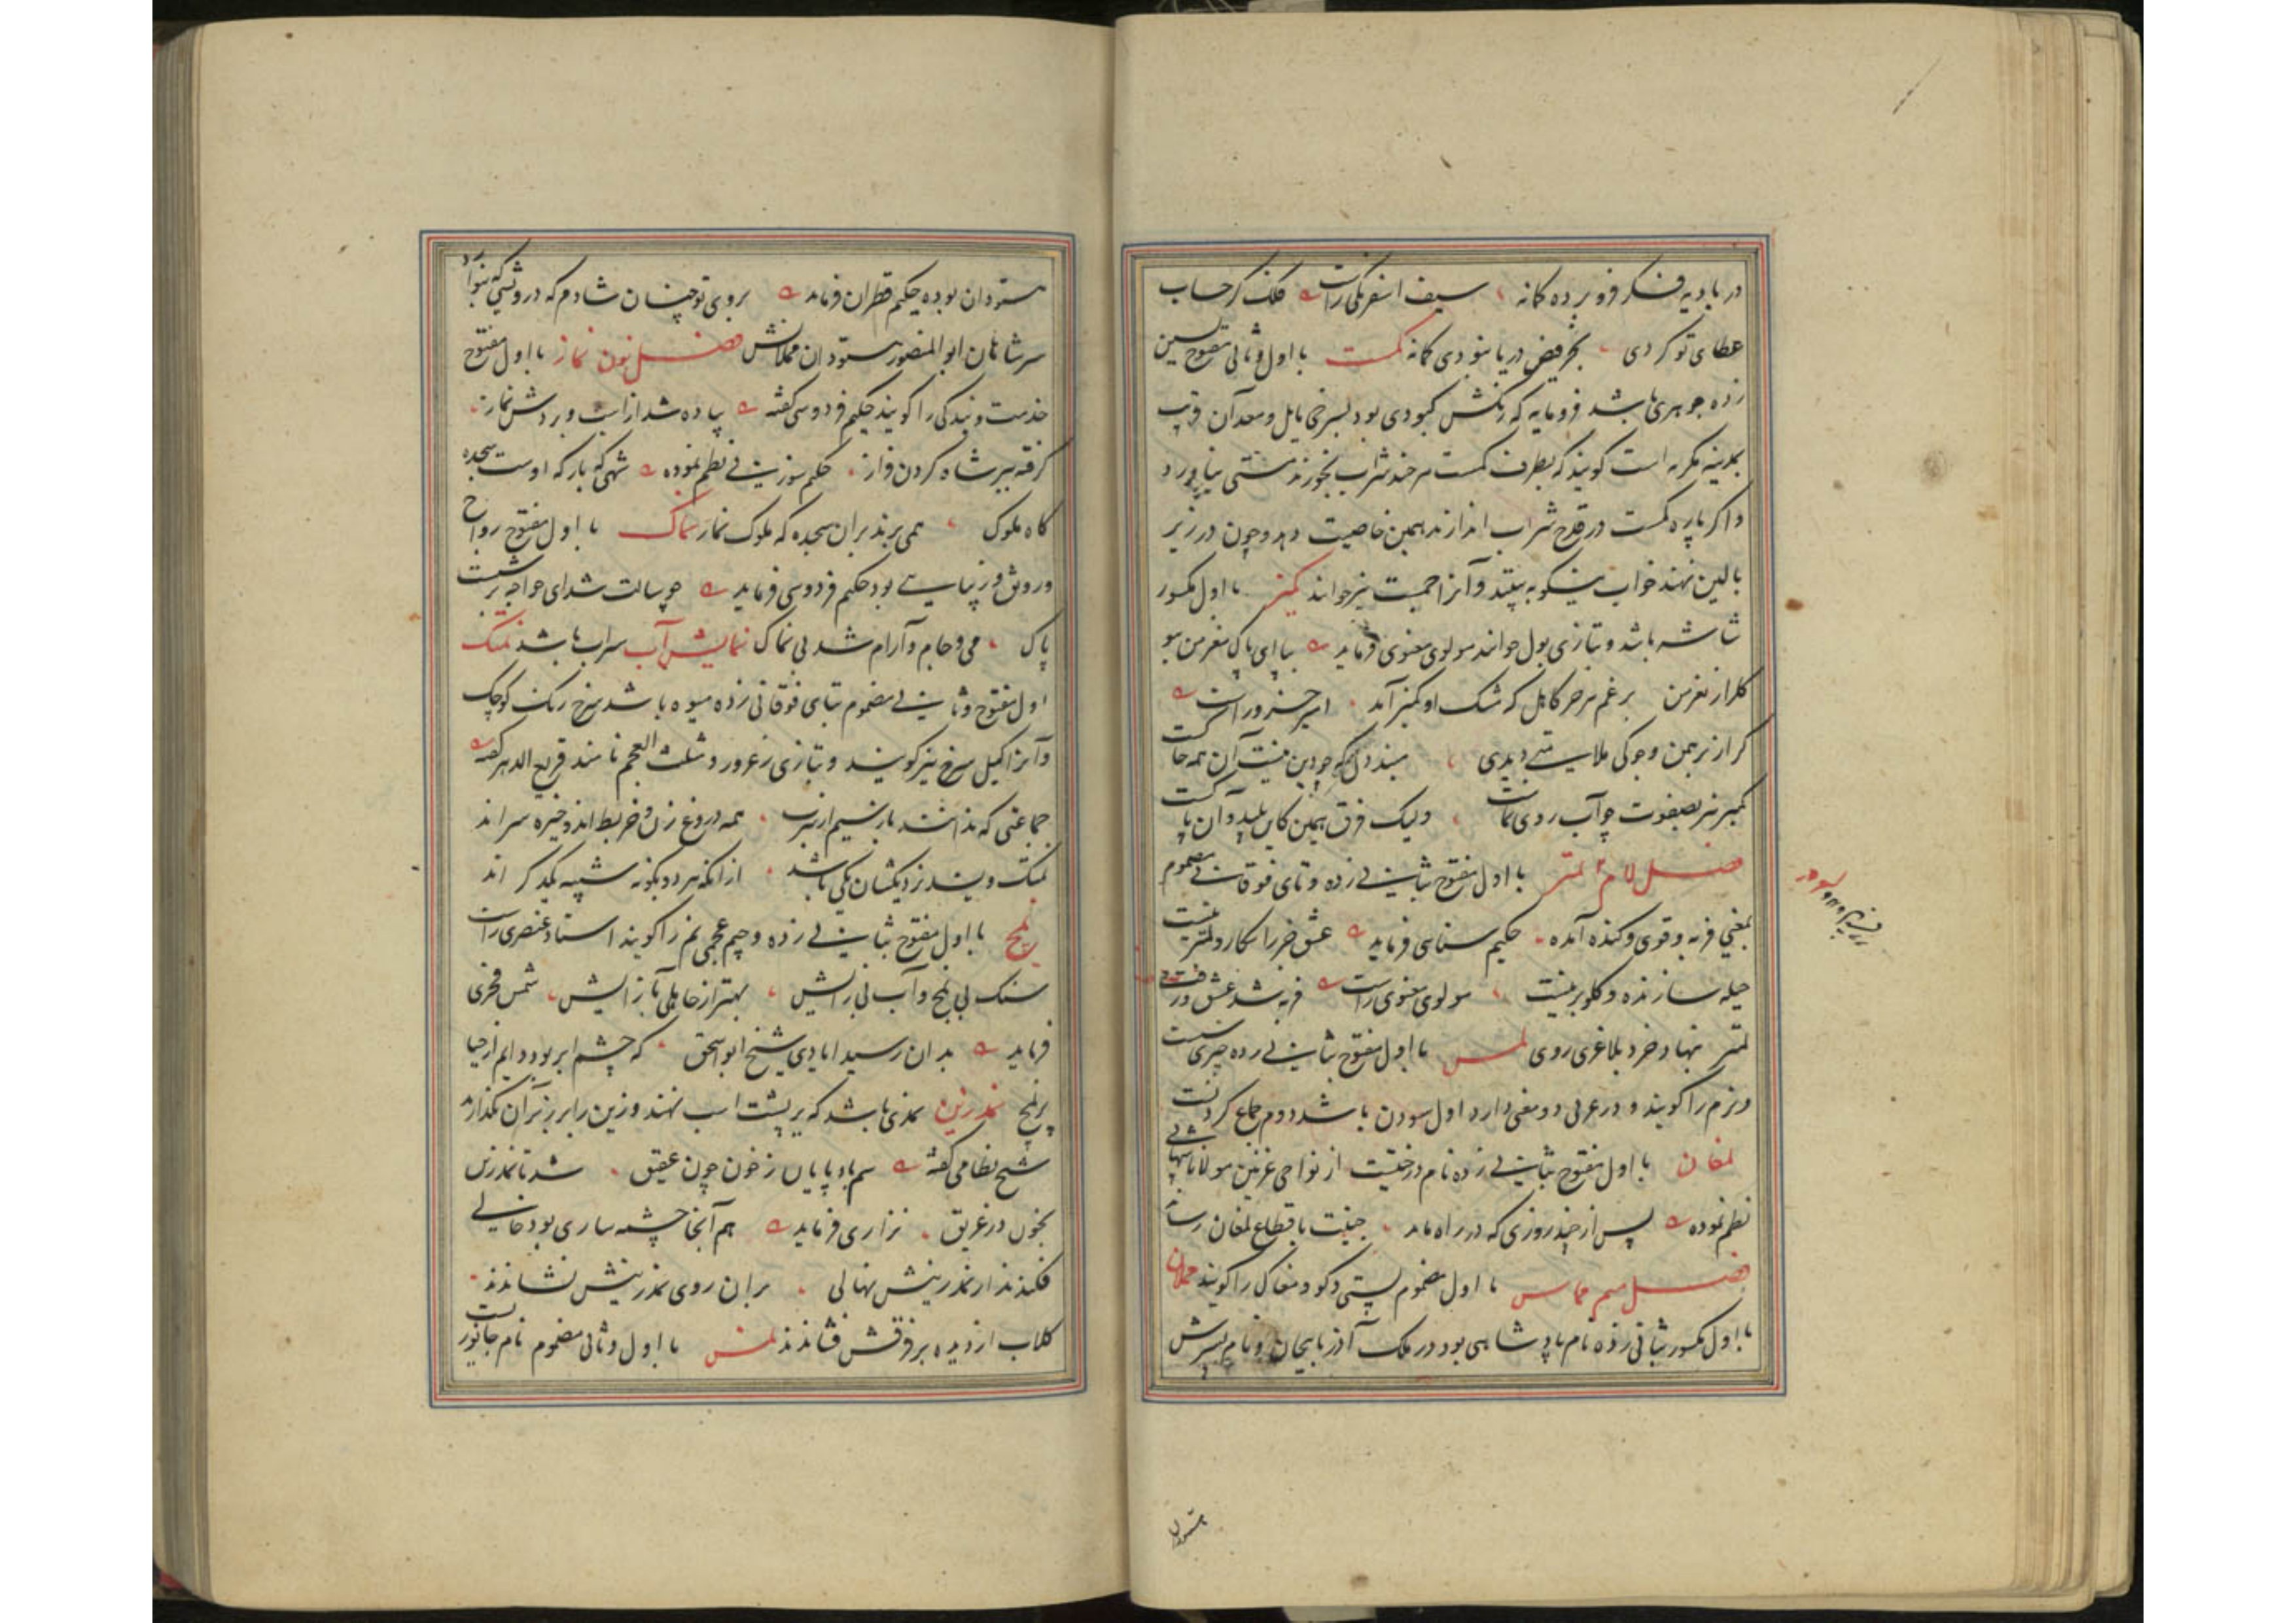 در بادیه فکر فرو برده کمانه سیف اسفرنگی راست فلک گر حساب
عطای تو کردی بجر فیض دریا نبودی کمانه کمست با اول و ثانی مفتوح بسین
زده جوهری باشد فرومایه که رنگش کبودی بود بسرخی مایل و معدآن قریب
بمدینه مکرمه است کویند که بظرف کمست هر چند شراب بخورند مستی نیاورد
و اکر پاره کمست در قدح شراب اندازند همین خاصیت دهد و چون در زیر
بالین نهند خواب نیکو به بینند و آنرا حمست نیز خوانند کمیز با اول مکسور
شاشه باشد و بتازی بول خوانند مولوی معنوی فرماید بیا ای پاک مغز من ببو
کلزار نغز من برغم هر خر کاهل که مشک او کمیز آمد امیر خسرو راست
کر از برهمن و جوکی ملایمتی دیدی مبند دل که چو دین نیست آن همه جا
کمیز نیز بصفوت چو آب روی نماست ولیک فرق همین کاین پلید و آن پا
فصل لام لمتر با اول مفتوح بثانی زده و تای فوقانی مضموم
بمعنی فربه و قوی و کنده آمده حکیم سنایی فرماید عشق خر را نکارد لمتر نیست
حیله سازنده و کلوبر نیست مولوی معنوی راست فربه شد عشق و زفت و
لمتر بنهاد خرد بلاغری روی لمس با اول مفتوح بثانی زده چیزی سست
و نرم را کویند و در عربی دو معنی دارد اول سودن باشد دوم جماع کردنست
لمغان با اول مفتوح بثانی زده نام درختیست از نواحی غزنین مولانا شهابی
نظم نموده پس از چند روزی که در راه ماند جنیبت باقطاع لمغان رساند
فصل میم مماس با اول مضموم پستی و کو و مغاک را کویند مملان
با اول مکسور بثانی زده نام پادشاهی بود در ملک آذربایجان و نام پسرش
ستودان
ستودان بوده حکیم قطران فرماید بروی تو چنان شادم که درویشی که بنوازد
سر شاهان ابو المنصور ستودان مملانش فصل نون نماز با اول مفتوح
خدمت و بندکی را کویند حکیم فردوسی کفته پیاده شد از اسب و بردش نماز
کرفته ببر شاه کردن فراز حکیم سوزنی نظم نموده شهی که بارکه اوست سجده
کاه ملوک همی برند بران سجده که ملوک نماز نماک با اول مفتوح رواج
و رونق و زیبایی بود حکیم فردوسی فرماید چو سالت شد ای خواجه بر شست
پاک می و جام و آرام شد بی نماک نمایش آب سراب باشد نمتک
اول مفتوح و ثانی مضموم بتای فوقانی زده میوه باشد سرخ رنک کوچک
و آنرا کیل سرخ نیز کویند و بتازی زعرور و مثلث العجم نامند قریع الدهر کفته
جماعتی که ندانند باز سیم از سرب همه دروغ زن و خربط اند و خیره سر اند
نمتک و بسد نزدیکشان یکی باشد از انکه هر دو بکونه شبیه یکدکر اند
نمج با اول مفتوح بثانی زده و جیم عجمی نم را کویند استاد عنصری راست
سنک بی نمج و آب بی زایش بهتر از جاهلی بآرایش شمس فخری
فرماید بدان رسید ایادی شیخ ابو اسحق که چشم ابر بود دایم از حیا
پر نمج نمد زین نمدی باشد که بر پشت اسب نهند و زین را بر زبر آن بکذارند
شیخ نظامی کفته سم بادپایان ز خون چون عقیق شد تا نمد زین
بخون در غریق نزاری فرماید هم آنجا چشمه ساری بود خالی
فکندند از نمد زینش نهالی بران روی نمد زینش نشاندند
کلاب از دیده بر فرقش فشاندند نمس با اول و ثانی مضموم نام جانوریست